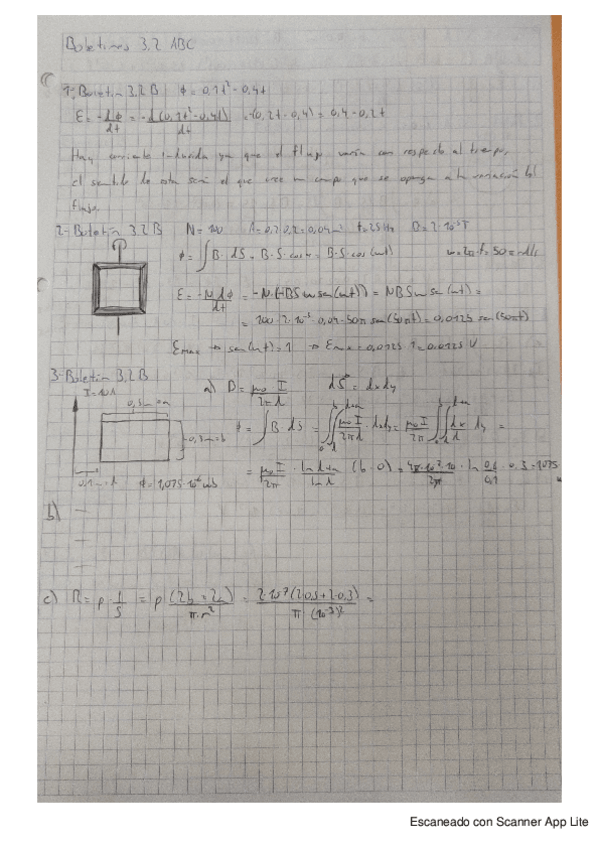 Boletines 3,2 ABC
1-Boletín 3,2 B ϕ = 0,1t² - 0,4t
ε = -dϕ/dt = -d(0,1t² - 0,4t)/dt = -(0,2t - 0,4) = 0,4 - 0,2t
Hay corriente inducida ya que el flujo varía con respecto al tiempo,
el sentido de esta será el que cree un campo que se oponga a la variación del
flujo.
2-Boletín 3,2 B N = 100 A = 0,2·0,2 = 0,04m² f = 25 Hz B = 2·10⁻³T
ϕ = ∫B·dS = B·S·cosα = B·S·cos(ωt) ω = 2π·f = 50π rad/s
ε = -N dϕ/dt = -N·(-BSω sen(ωt)) = NBSω sen(ωt) =
= 100·2·10⁻³·0,04·50π sen(50πt) = 0,0125 sen(50πt)
εmax → sen(ωt) = 1 → εmax = 0,0125·1 = 0,0125 V
3-Boletín 3,2 B
I = 10A
0,5m = a
0,3m = b
0,1m = d
a) B = μ₀ I / 2πd dS = dx dy
ϕ = ∫B·dS = ∫∫ μ₀ I / 2πd · dx dy = μ₀ I / 2π ∫∫ dx/d dy =
= μ₀ I / 2π · ln d+a / ln d (b - 0) = 4π·10⁻⁷·10 / 2π · ln 0,6/0,1 · 0,3 = 1,075
ϕ = 1,075·10⁻⁶ wb
b)
c) R = ρ · l/S = ρ (2b + 2a) / π·r² = 2·10⁻⁷(2·0,5 + 2·0,3) / π·(10⁻³)² =
Escaneado con Scanner App Lite